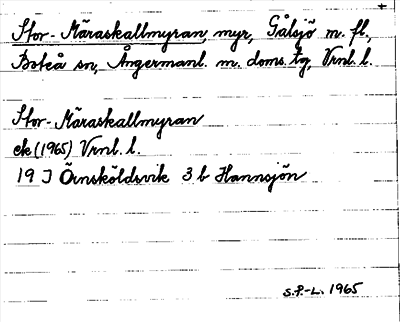 Stor-Märaskallmyran, myr, Gålsjö m. fl.,
Boteå sn, Ångermanl. m. doms. tg, Vrnl. l.
Stor-Märaskallmyran
ek (1965) Vrnl. l.
19 J Örnsköldsvik 3 b Hannsjön
S.P.-L. 1965